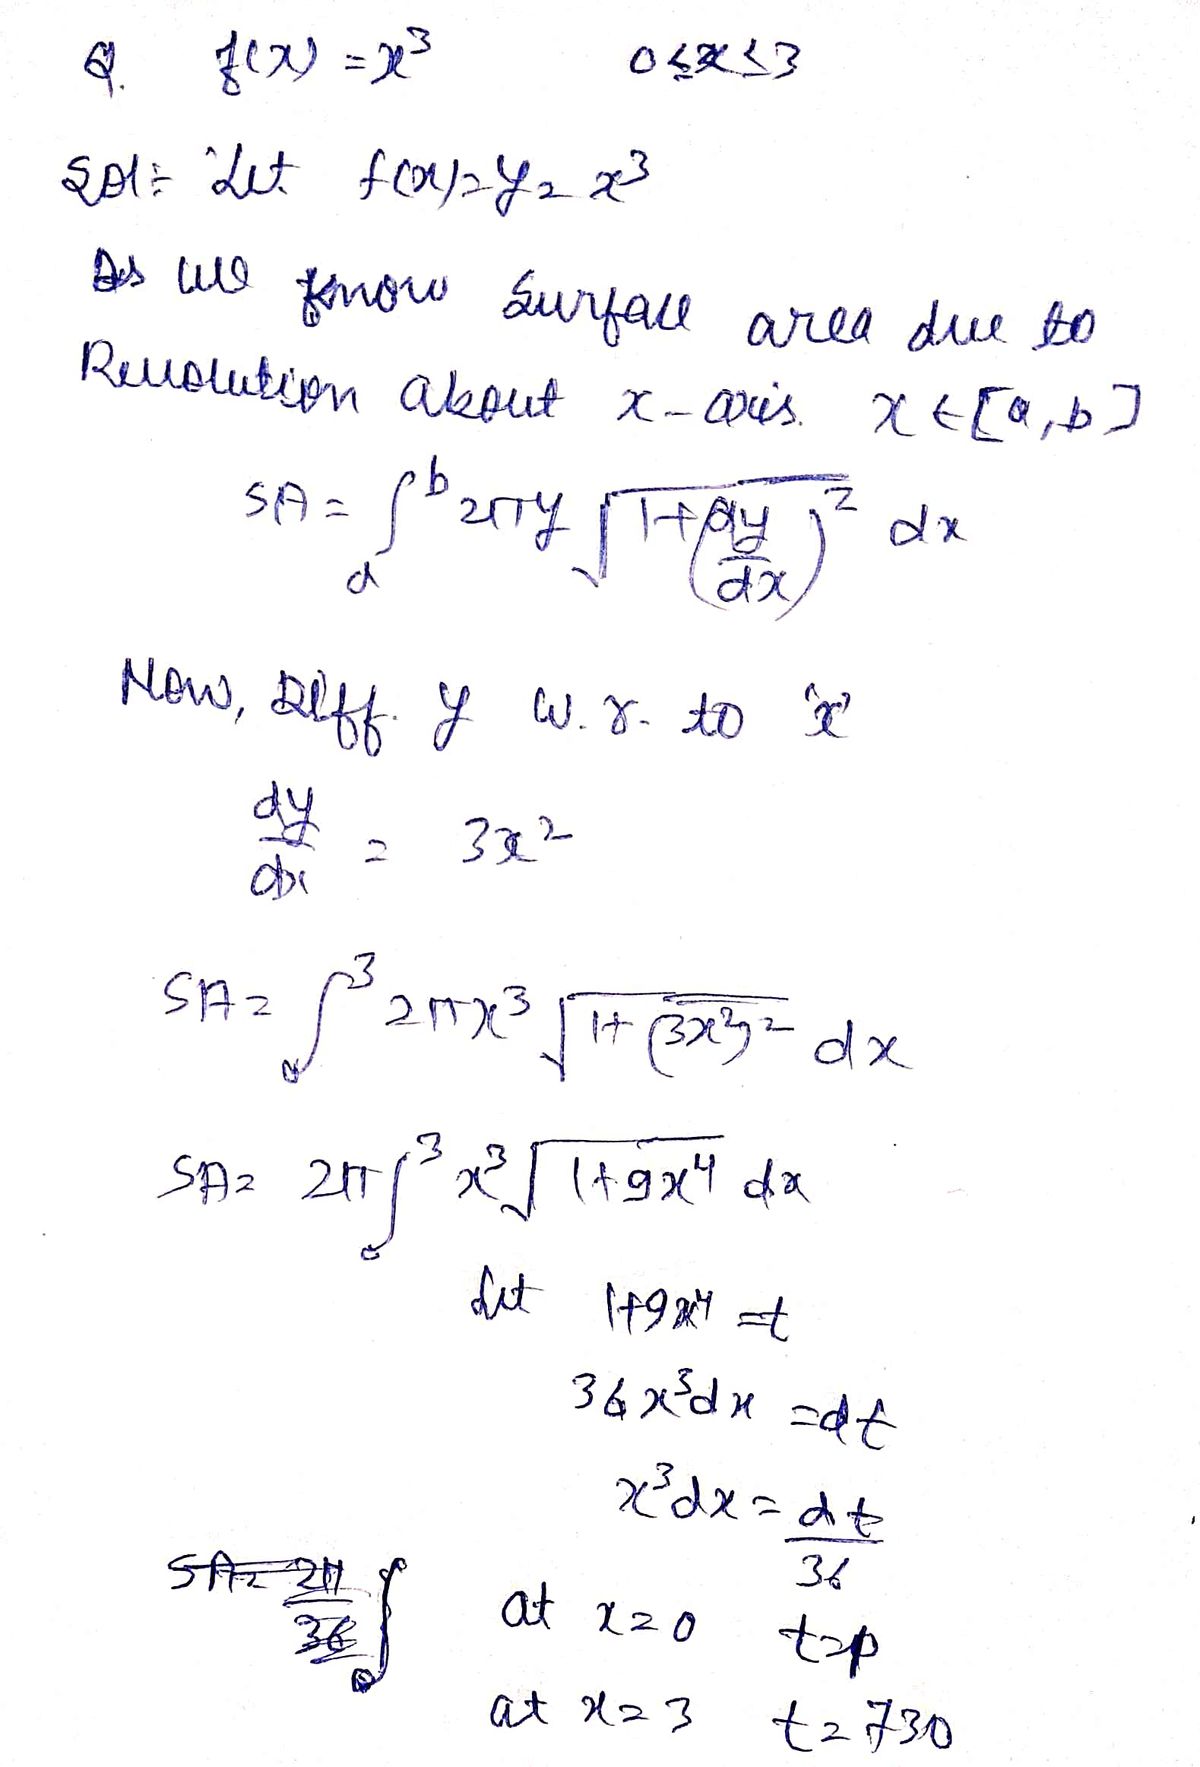 Q. f(x) = x³ 0 ≤ x ≤ 3
Sol:- Let f(x) = y = x³
As we know Surface area due to
Revolution about x-axis. x ∈ [a, b]
SA = ∫ₐᵇ 2πy √(1+(dy/dx)²) dx
Now, Diff. y w.r. to 'x'
dy/dx = 3x²
SA = ∫₀³ 2πx³ √(1+(3x²)²) dx
SA = 2π ∫₀³ x³ √(1+9x⁴) dx
Let 1+9x⁴ = t
36x³dx = dt
x³dx = dt/36
SA = 2π/36 ∫₀
at x = 0 t = 1
at x = 3 t = 730